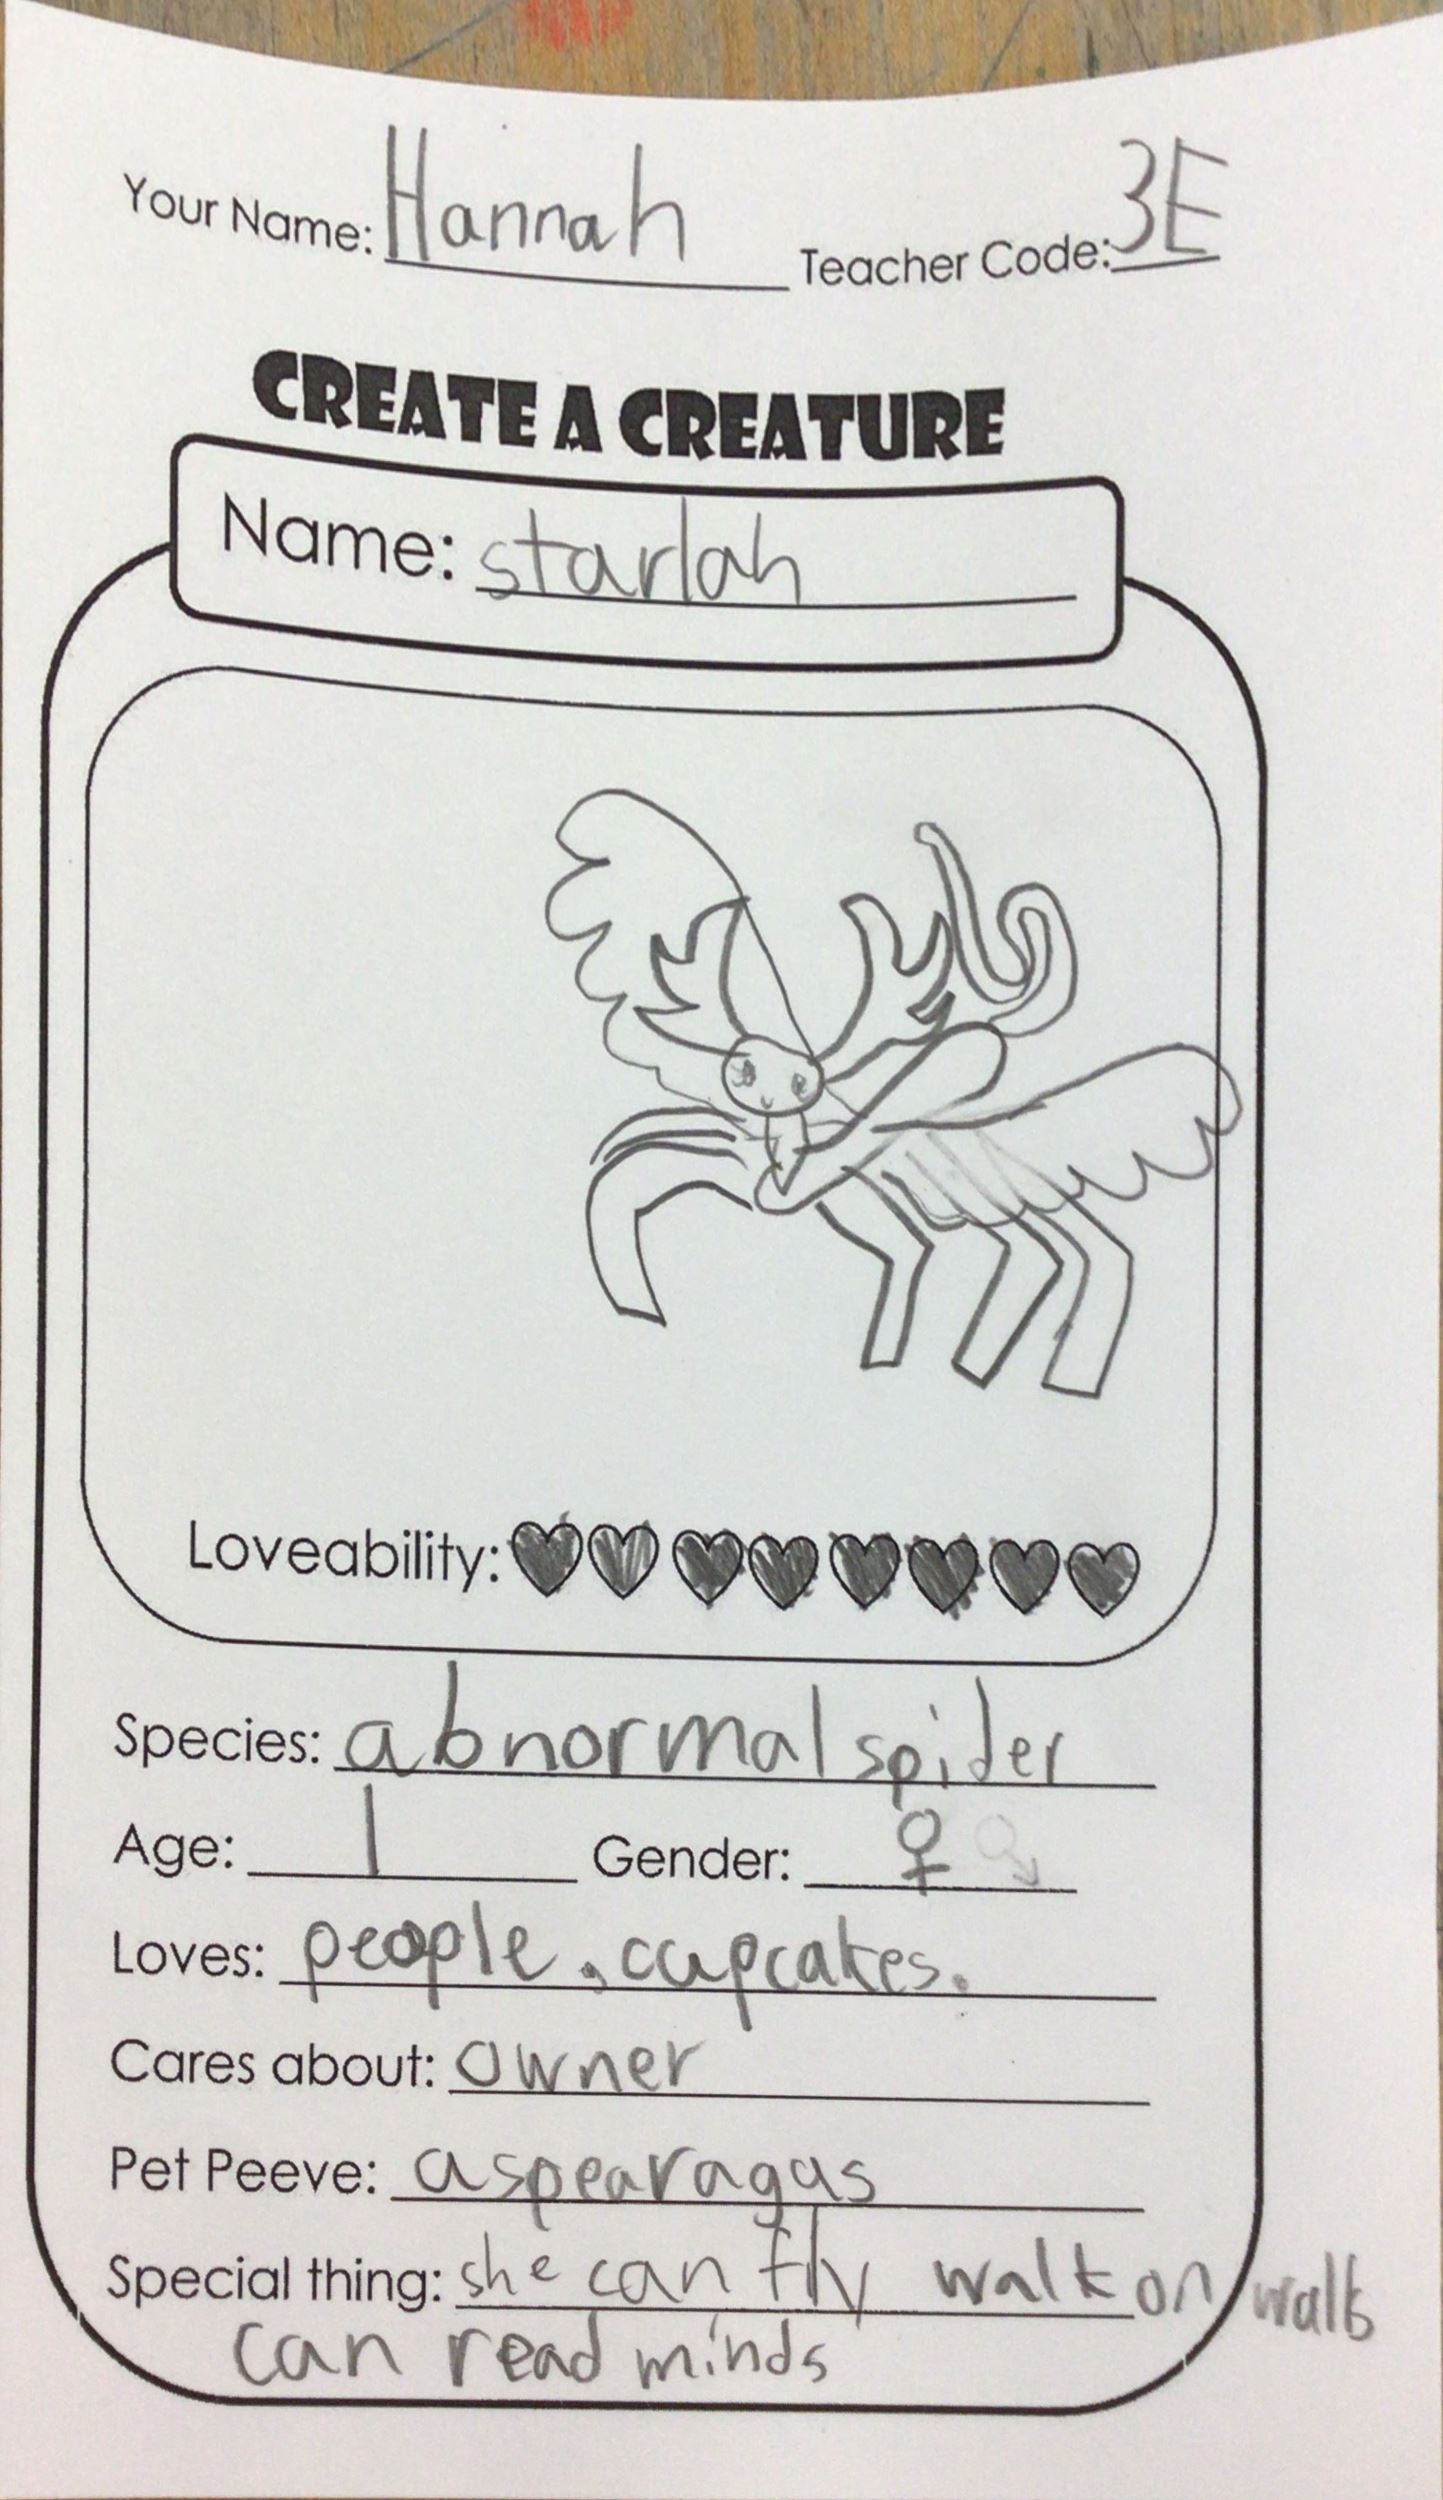 Your Name: Hannah Teacher Code: 3E
CREATE A CREATURE
Name: starlah
Loveability:
Species: abnormal spider
Age: 1 Gender: ♀
Loves: people, cupcakes.
Cares about: owner
Pet Peeve: aspearagas
Special thing: she can fly walk on walls
can read minds